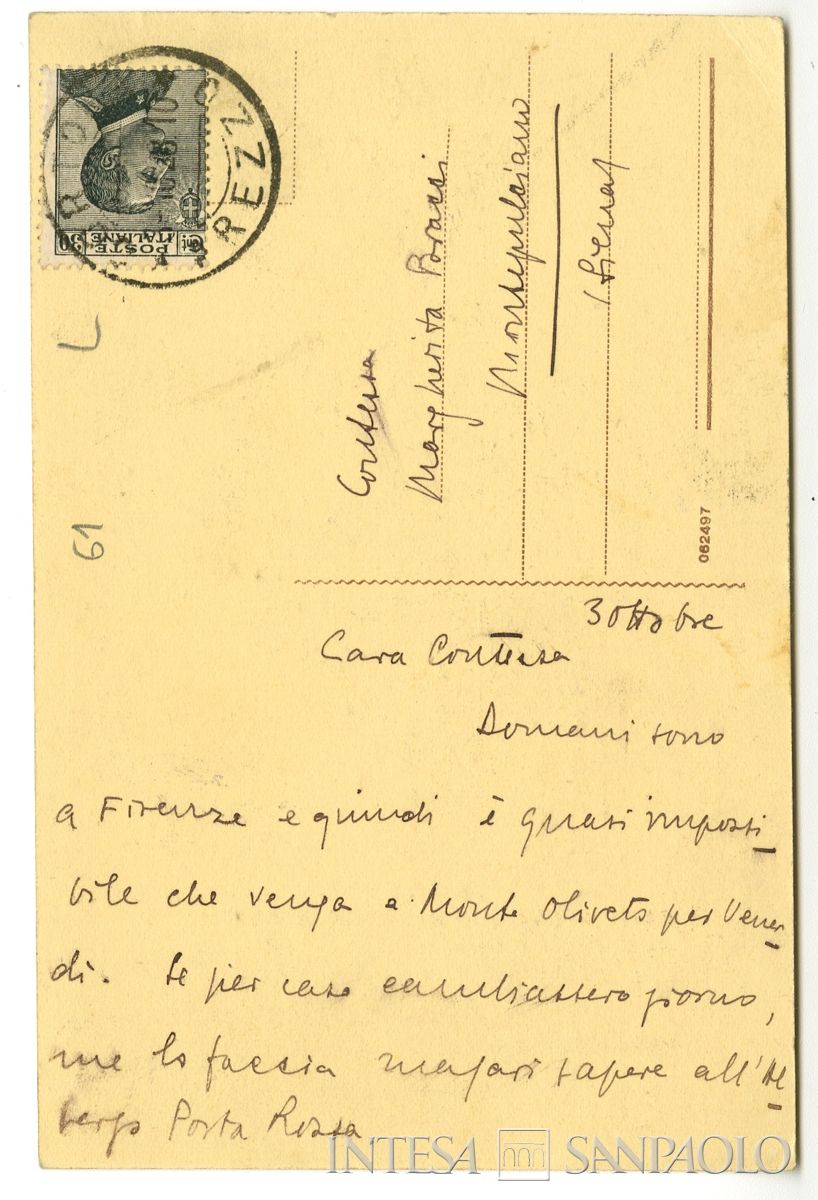 AREZZO
POSTE
ITALIANE
Cent
30
L
61
Contessa
Margherita
Montepulciano
(Siena)
062497
3 ottobre
Cara Contessa
Domani sono
a Firenze e quindi è quasi impossi-
bile che venga a Monte Oliveto per Vener-
dì. Se per caso cambiassero giorno,
me lo faccia magari sapere all'Al-
bergo Porta Rossa
INTESA SANPAOLO